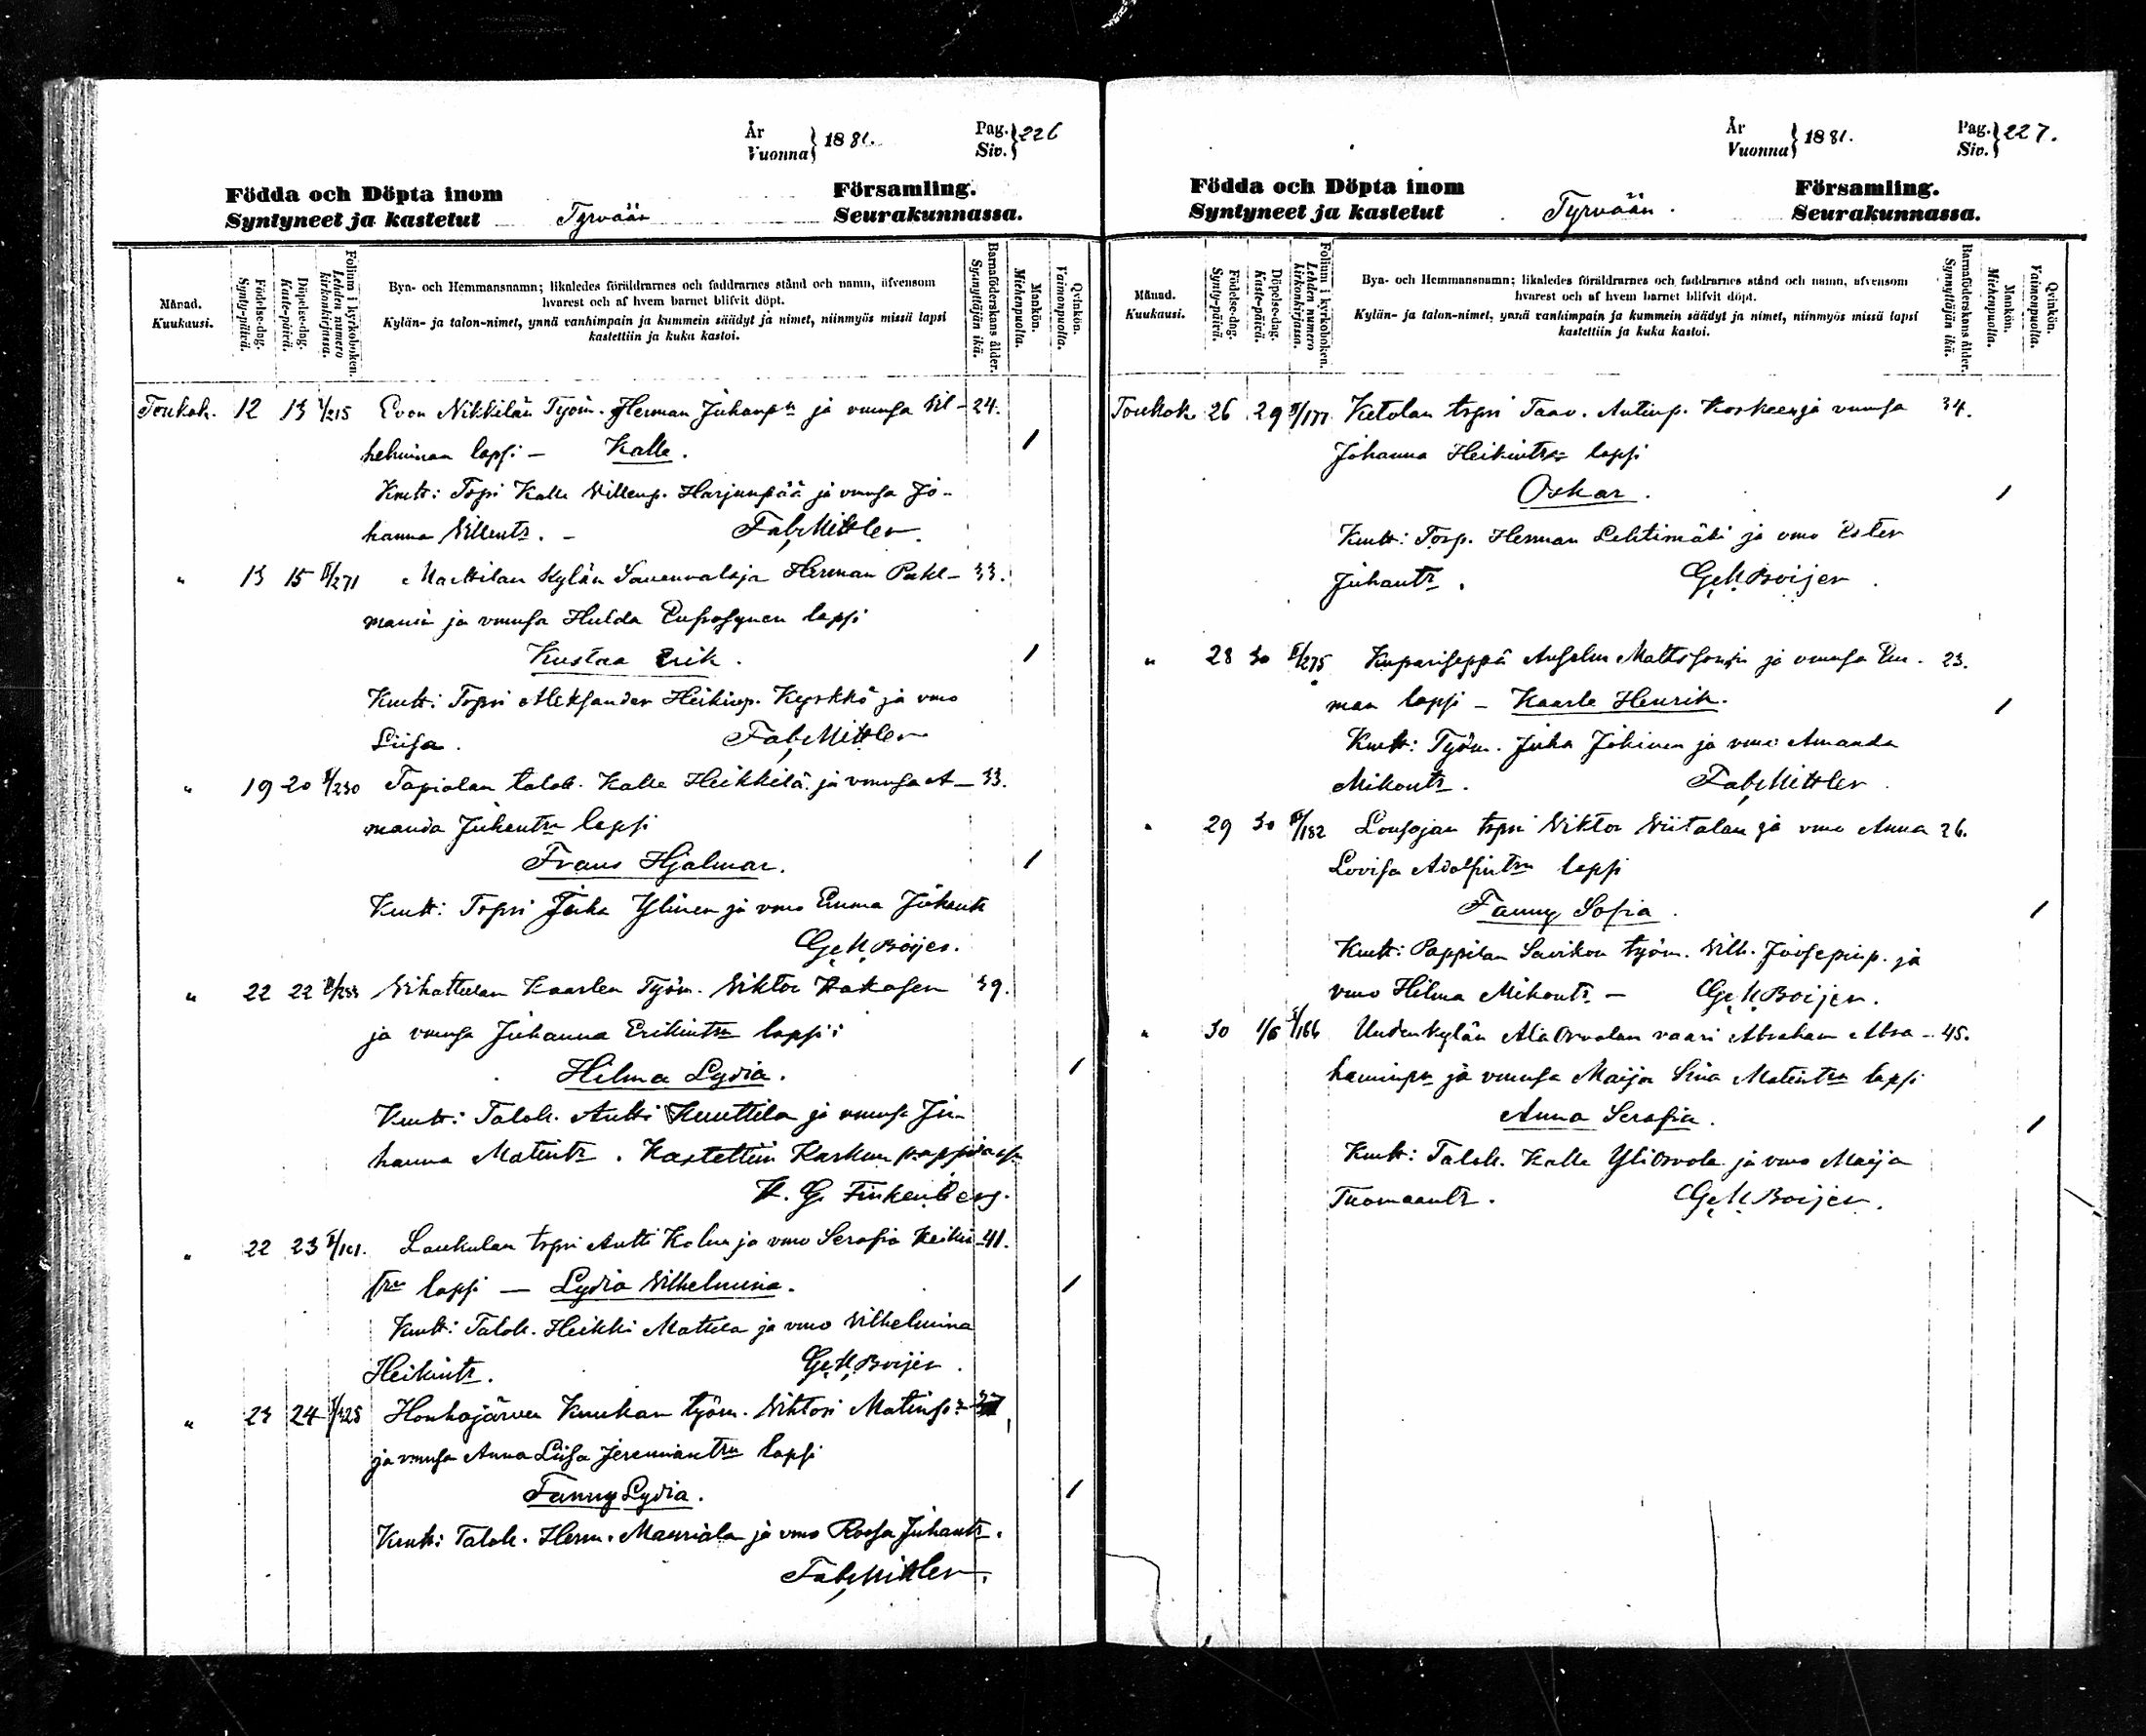 År
Vuonna } 1881.
Pag.
Siv. } 226
Födda och Döpta inom Församling.
Syntyneet ja kastetut Tyrvään Seurakunnassa.
Månad.
Kuukausi.
Födelse-dag.
Synty-päivä.
Döpelse-dag.
Kaste-päivä.
Folium i kyrkoboken.
Lehden numero
kirkonkirjassa.
Bya- och Hemmansnamn; likaledes föräldrarnes och faddrarnes stånd och namn, äfvensom
hvarest och af hvem barnet blifvit döpt.
Kylän- ja talon-nimet, ynnä vanhimpain ja kummein säädyt ja nimet, niinmyös missä lapsi
kastettiin ja kuka kastoi.
Barnaföderskans ålder.
Synnyttäjän ikä.
Mankön.
Miehenpuolta.
Qvinkön.
Vaimonpuolta.
Toukok. 12 13 1/215 Evon Nikkilän Työm. Herman Juhanp. ja vmnsa Vil- 24.
helminan lapsi - Kalle. 1
Kmt: Tspi Kalle Villenp. Harjunpää ja vmnsa Jo-
hanna Villentr. - Fab. Mittler.
" 13 15 II/271 Marttilan Kylän Sauenvalaja Herman Pahl- 33.
manin ja vmnsa Hulda Eufrosynen lapsi
Kustaa Erik. 1
Kmt: Tspi Aleksander Heikinp. Kyrkkö ja vmo
Liisa. Fab. Mittler
" 19 20 /230 Tapiolan talok. Kalle Heikkilä ja vmnsa A- 33.
manda Juhantr lapsi
Frans Hjalmar. 1
Kmt: Tspi Juha Ylinen ja vmo Emma Juhantr
G. M. Boijer.
" 22 22 /233 Vihattulan Kaarlen Työm. Viktor Hakasen 39.
ja vmnsa Juhanna Erikintr lapsi:
Hilma Lydia. 1
Kmt: Talok. Antti Knuttila ja vmnsa Ju-
hanna Matintr. Kastettiin Karkun pappilassa
K. G. Finkenberg.
" 22 23 /101. Laukulan tspi Antti Kalun ja vmo Serafia Heikin- 41.
trn lapsi - Lydia Vilhelmina. 1
Kmt: Talok. Heikki Mattila ja vmo Vilhelmina
Heikintr. G. M. Boijer.
" 23 24 /325 Houhajärven Kuukan työm. Viktori Matinp. 37
ja vmnsa Anna Liisa Jeremiantr lapsi
Fanny Lydia. 1
Kmt: Talok. Herm. Mauriala ja vmo Roosa Juhantr.
Fab. Mittler.
År
Vuonna } 1881.
Pag.
Siv. } 227.
Födda och Döpta inom Församling.
Syntyneet ja kastetut Tyrvään. Seurakunnassa.
Månad.
Kuukausi.
Födelse-dag.
Synty-päivä.
Döpelse-dag.
Kaste-päivä.
Folium i kyrkoboken.
Lehden numero
kirkonkirjassa.
Bya- och Hemmansnamn; likaledes föräldrarnes och faddrarnes stånd och namn, äfvensom
hvarest och af hvem barnet blifvit döpt.
Kylän- ja talon-nimet, ynnä vanhimpain ja kummein säädyt ja nimet, niinmyös missä lapsi
kastettiin ja kuka kastoi.
Barnaföderskans ålder.
Synnyttäjän ikä.
Mankön.
Miehenpuolta.
Qvinkön.
Vaimonpuolta.
Toukok 26 29 /177 Ketolan tspi Taav. Antinp. Kosken ja vmnsa 34.
Johanna Heikintr lapsi
Oskar. 1
Kmt: Torp. Herman Lehtimäki ja vmo Ester
Juhantr. G. M. Boijer.
" 28 30 II/275 Kupariseppä Anselm Mattssonin ja vmnsa Em- 23.
man lapsi - Kaarle Henrik. 1
Kmt: Työm. Juha Jokinen ja vmo Amanda
Mikontr. Fab. Mittler.
" 29 30 /182 Lousajan tspi Viktor Viitalan ja vmo Anna 26.
Lovisa Adolfintr lapsi
Fanny Sofia. 1
Kmt: Pappilan Savikon työm. Vilh. Joosepinp. ja
vmo Hilma Mikontr. - G. M. Boijer.
" 30 1/6 /166 Uudenkylän Ala Orvolan vaari Abraham Abra- 45.
haminp ja vmnsa Maija Stina Matintr lapsi
Anna Serafia. 1
Kmt: Talok. Kalle Yliorvola ja vmo Maija
Tuomaantr. G. M. Boijer.